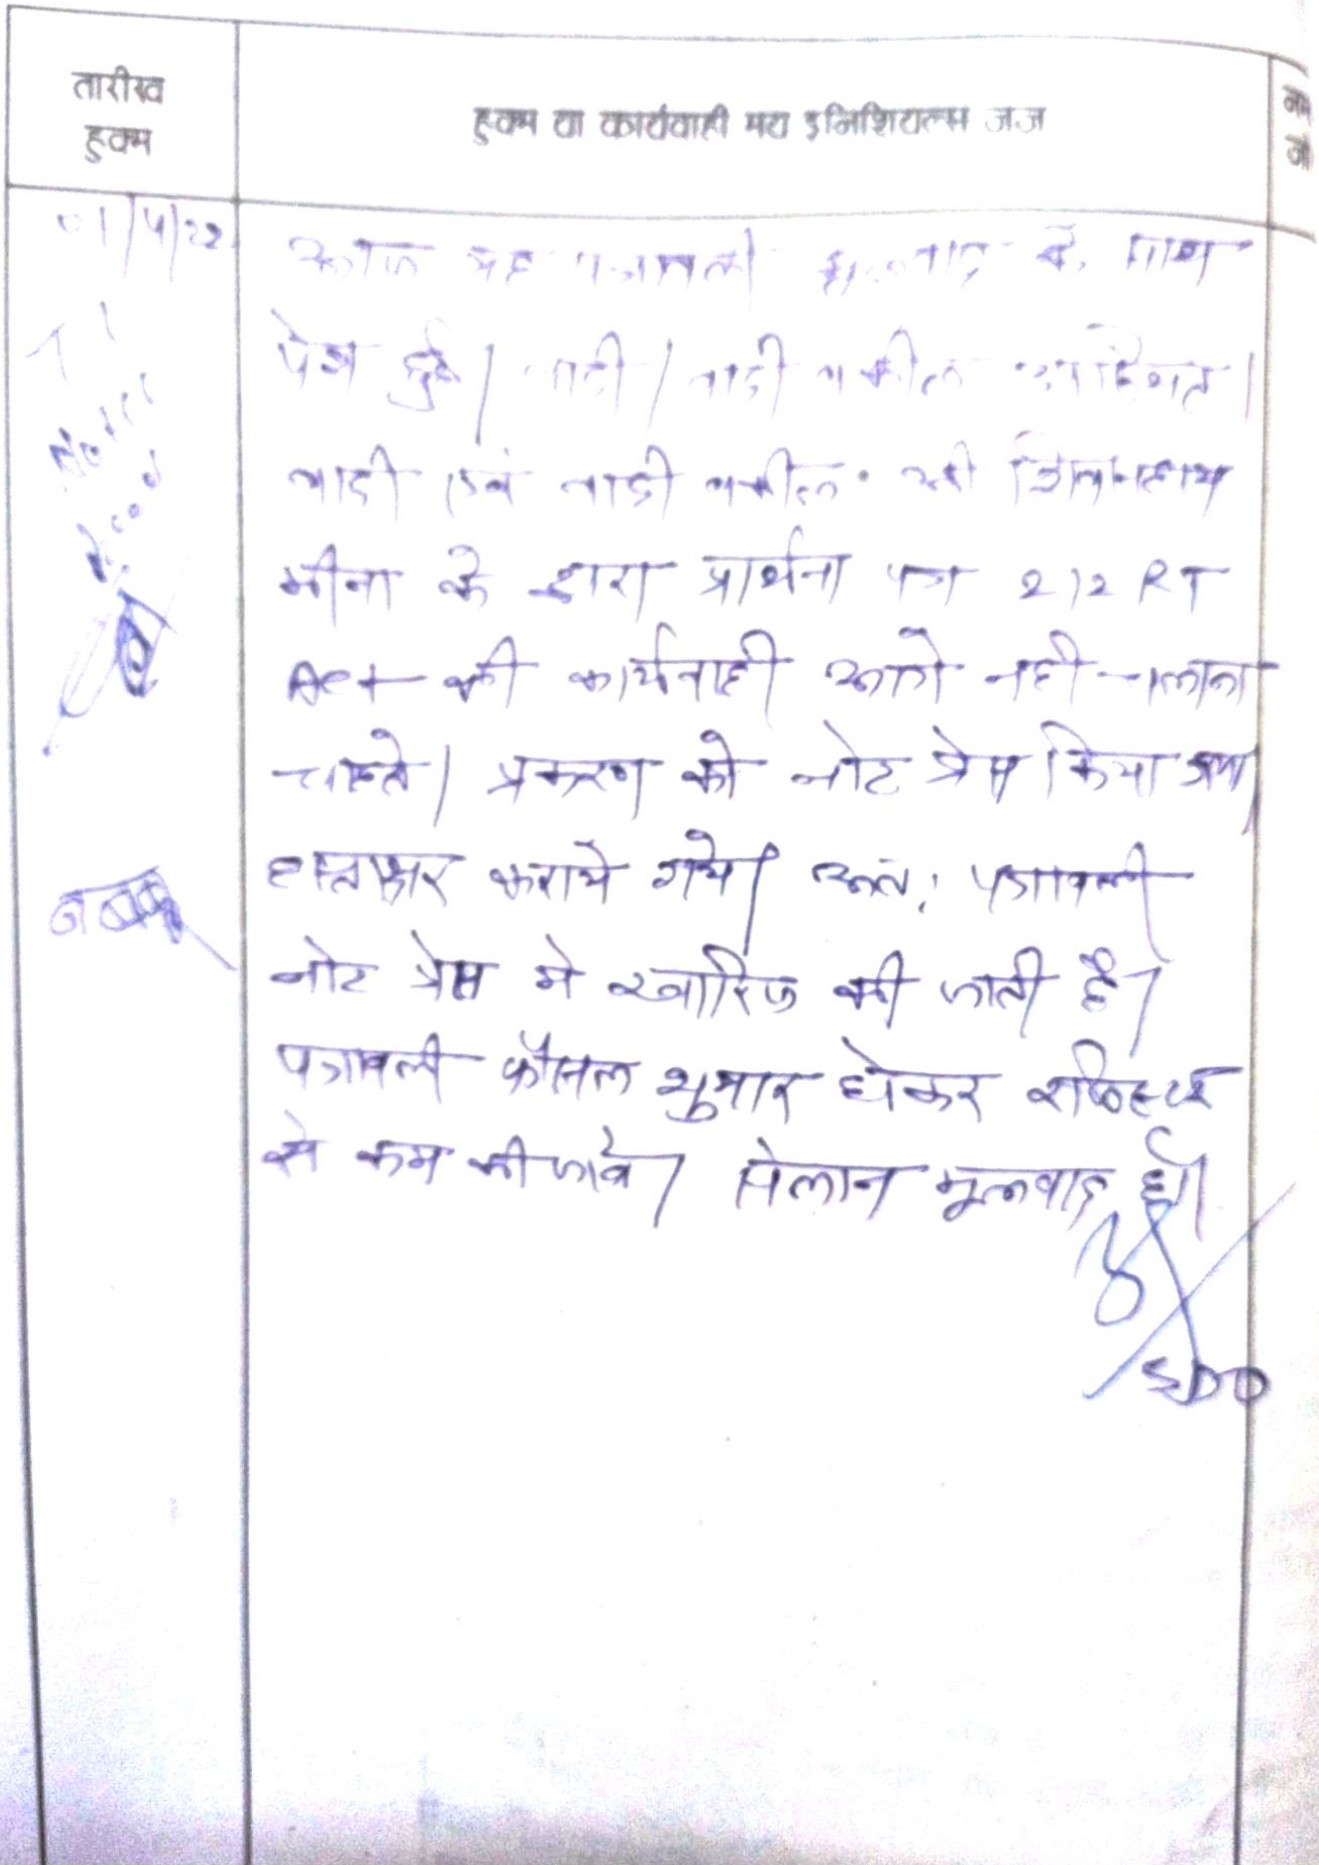 तारीख
हुक्म
हुक्म या कार्यवाही मय इनिशियल्स जज
01/4/22
आज यह पत्रावली के साथ
पेश हुई। वादी / वादी वकील उपस्थित।
वादी एवं वादी वकील श्री
मीना के द्वारा प्रार्थना पत्र 212 RT
Act की कार्यवाही आगे नही चलाना
चाहते। प्रकरण को नोट प्रेस किया
हस्ताक्षर कराये गये। अतः पत्रावली
नोट प्रेस मे खारिज की जाती है।
पत्रावली फैसल शुमार होकर
से कम की जावे। मूलवाद हो।
SDO